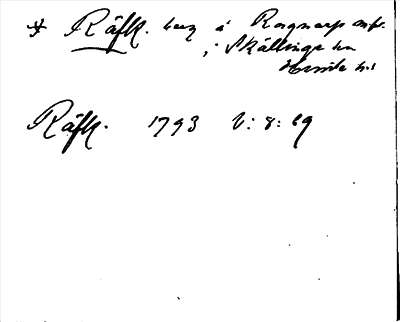 * Räfk. beg å Ragnarp mfl.
i Skällinge sn
Himle hd
Räfk. 1793 V: 8: 69